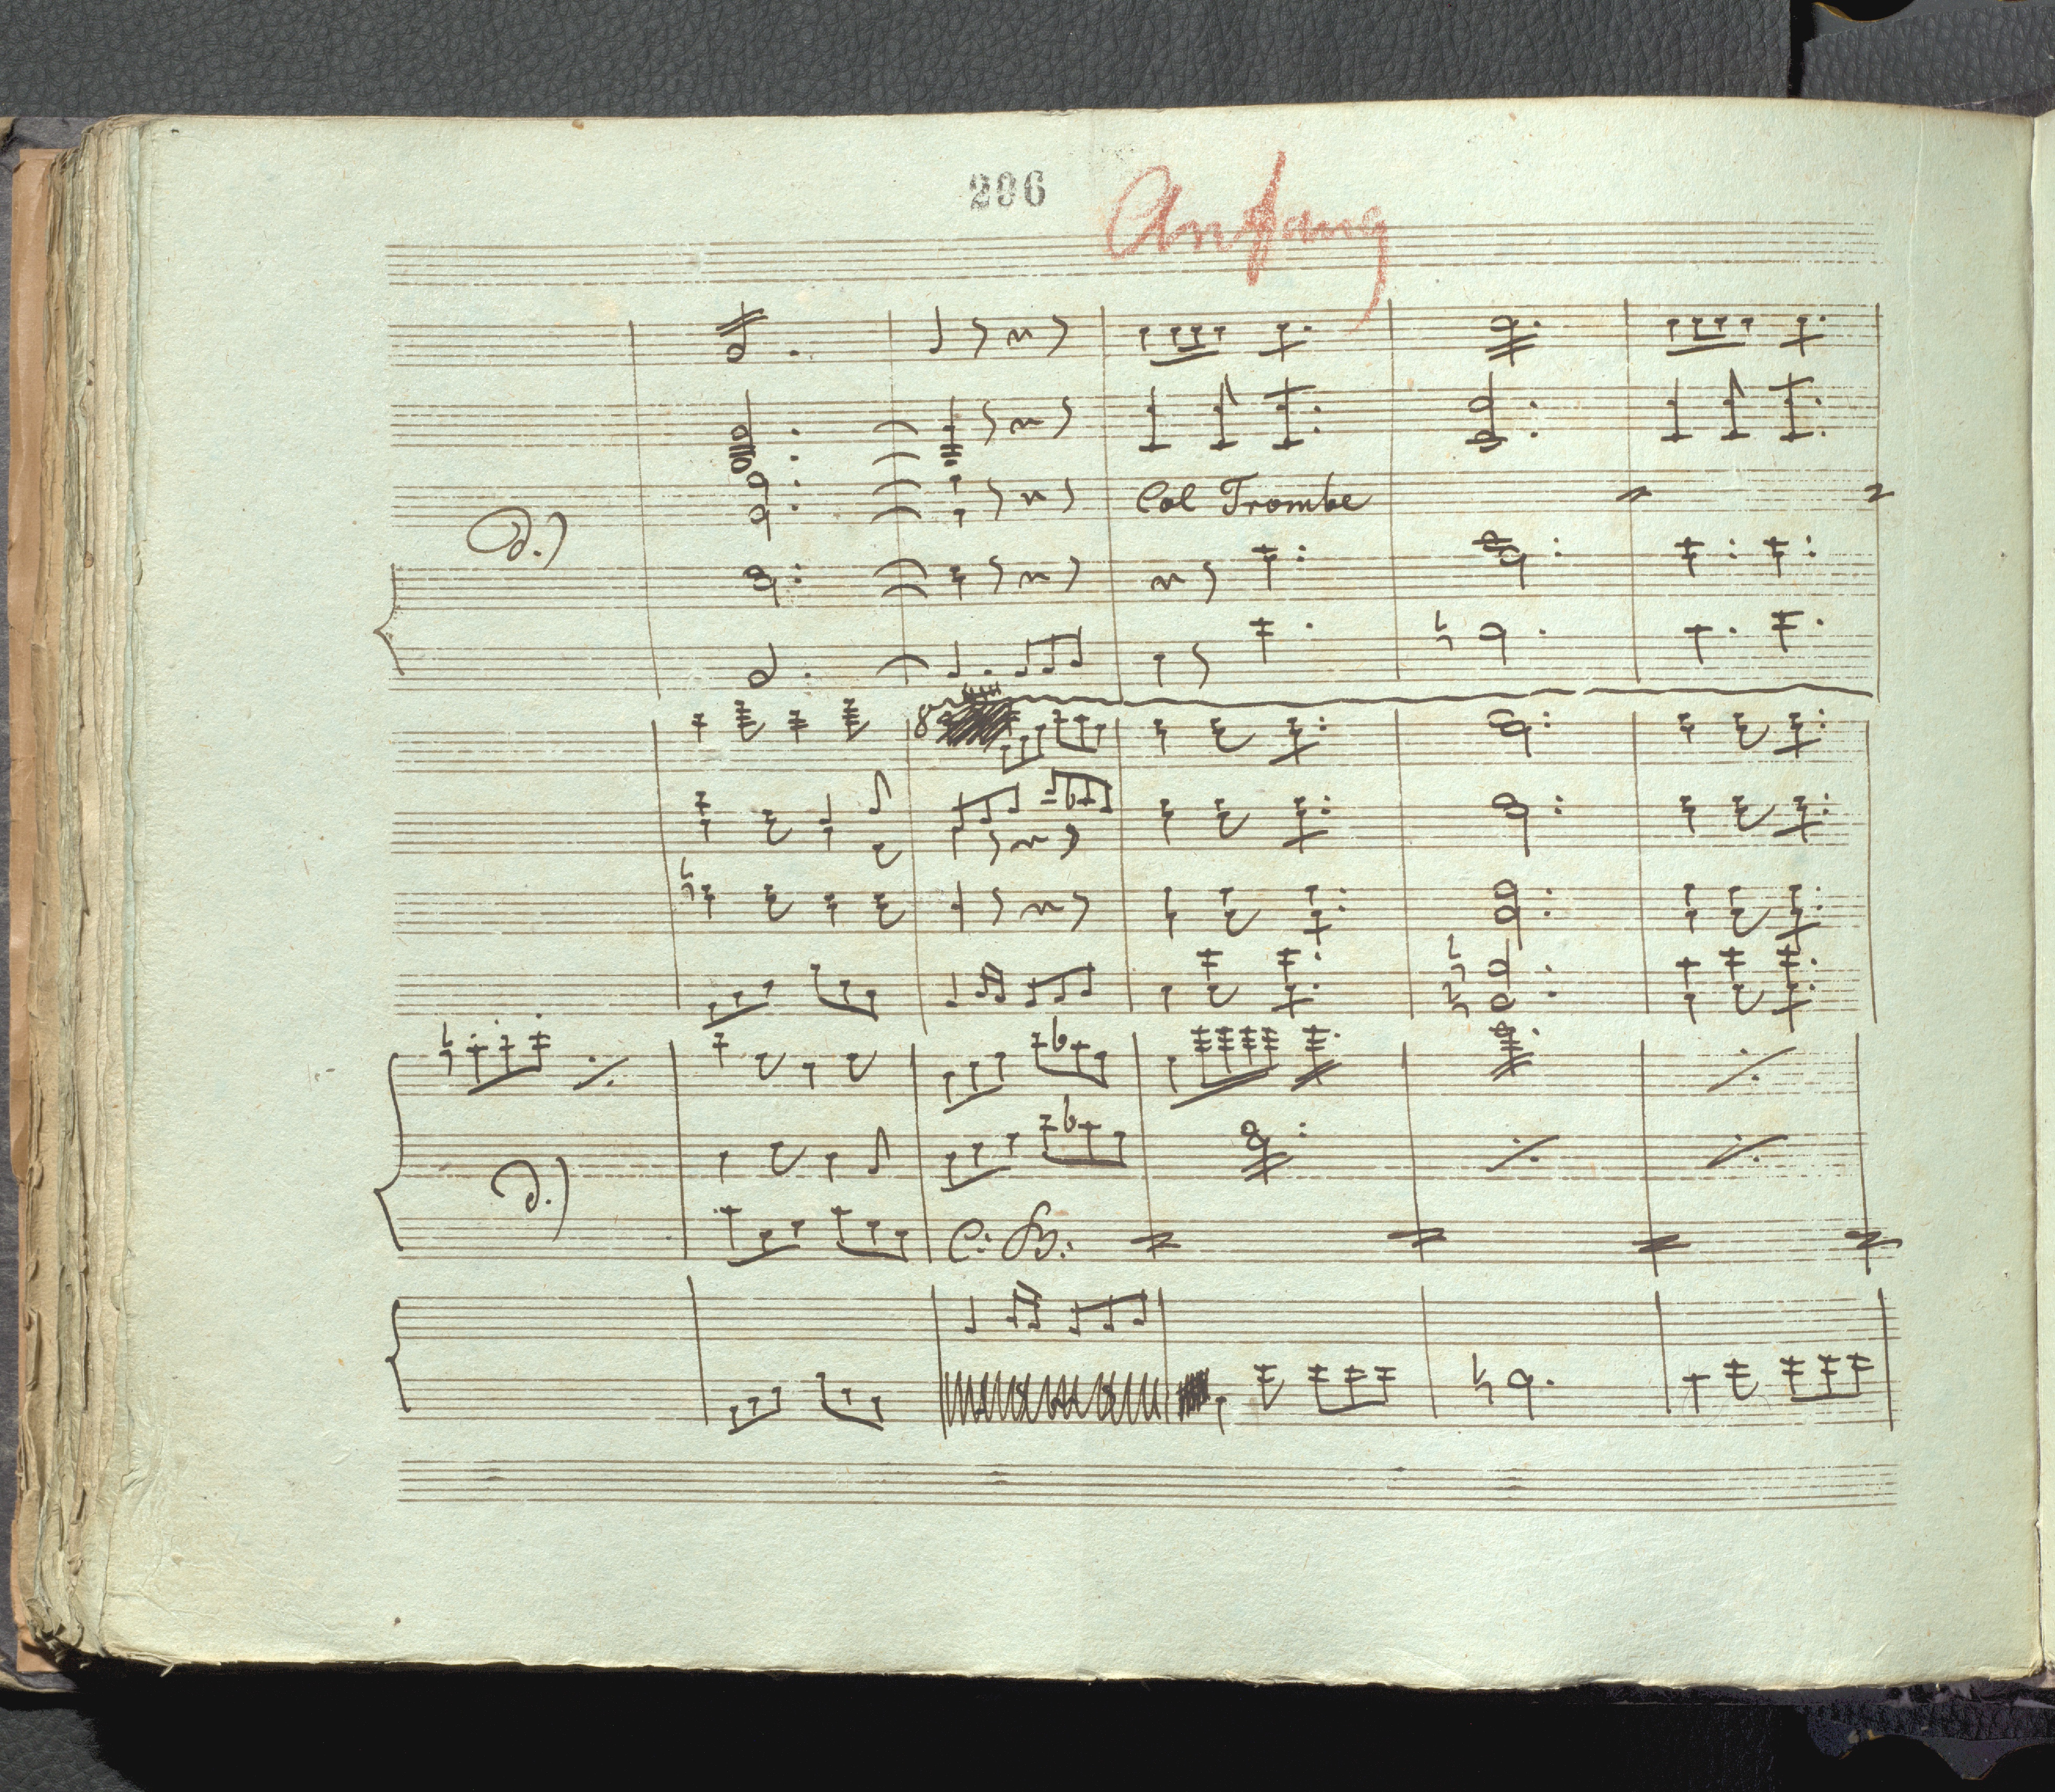 296
Anffang
∂.)
Col Trombe
8
∂.)
C: B: